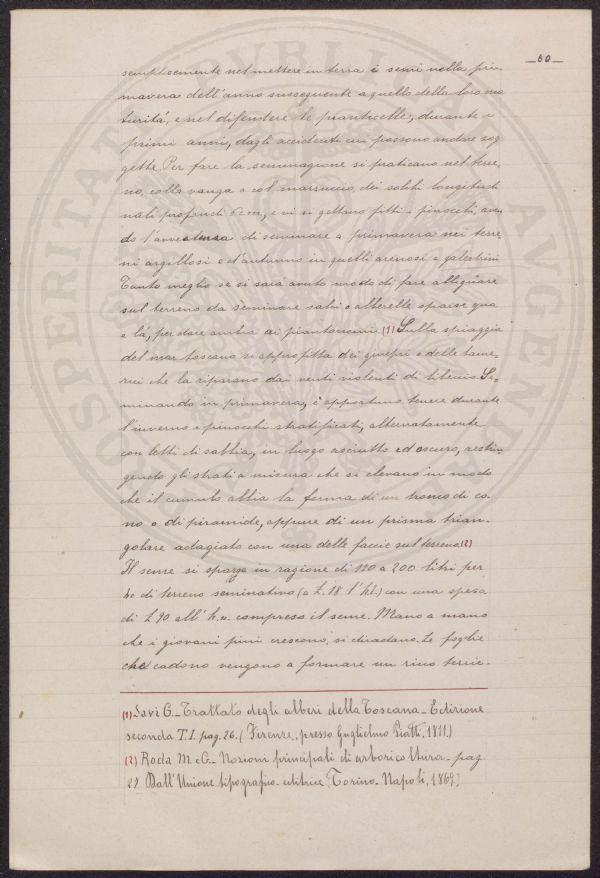 _60_
semplicemente nel mettere in terra i semi nella pri-
mavera dell'anno susseguente a quello della loro ma
turità, e nel difendere le pianticelle, durante i
primi anni, dagli accidenti cui possono andare sog
gette. Per fare la seminagione si praticano nel terre.
no, colla vanga o col marruccio, dei solchi longitudi
nali profondi 6 cm, e vi si gettano fitti i pinocchi, aven
do l'avvertenza di seminare a primavera nei terre.
ni argillosi e d'autunno in quelli arenosi e galestrini
Tanto meglio se si sarà avuto modo di fare allignare
sul terreno da seminare salci o alberelle sparse qua
e là, per dare ombra ai piantoncini. (1) Sulla spiaggia
del mar toscano si approfitta dei ginepri e delle tame.
rici che la riparano dai venti violenti di libeccio. Se.
minando in primavera, è opportuno tenere durante
l'inverno i pinocchi stratificati, alternatamente
con letti di sabbia, in luogo asciutto ed oscuro, restrin
gendo gli strati a misura che si elevano in modo
che il cumulo abbia la forma di un tronco di co.
no o di piramide, oppure di un prisma trian-
golare adagiato con una delle faccie sul terreno. (2)
Il seme si sparge in ragione di 120 a 200 litri per
ha di terreno seminativo (a L. 18 l'hl.) con una spesa
di L 90 all'h.a. compreso il seme. Mano a mano
che i giovani pini crescono, si diradano. Le foglie
che cadono vengono a formare un ricco terric.
(1) Savi G._ Trattato degli alberi della Toscana _ Edizione
seconda T.I. pag. 26. (Firenze, presso Guglielmo Piatti, 1811.)
(2) Roda M. e G._ Nozioni principali di arboricoltura. _ pag
29. Dall'Unione tipografico-editrice, Torino. Napoli, 1869.)
PROSPERITATI PUBLICAE AUGENDAE